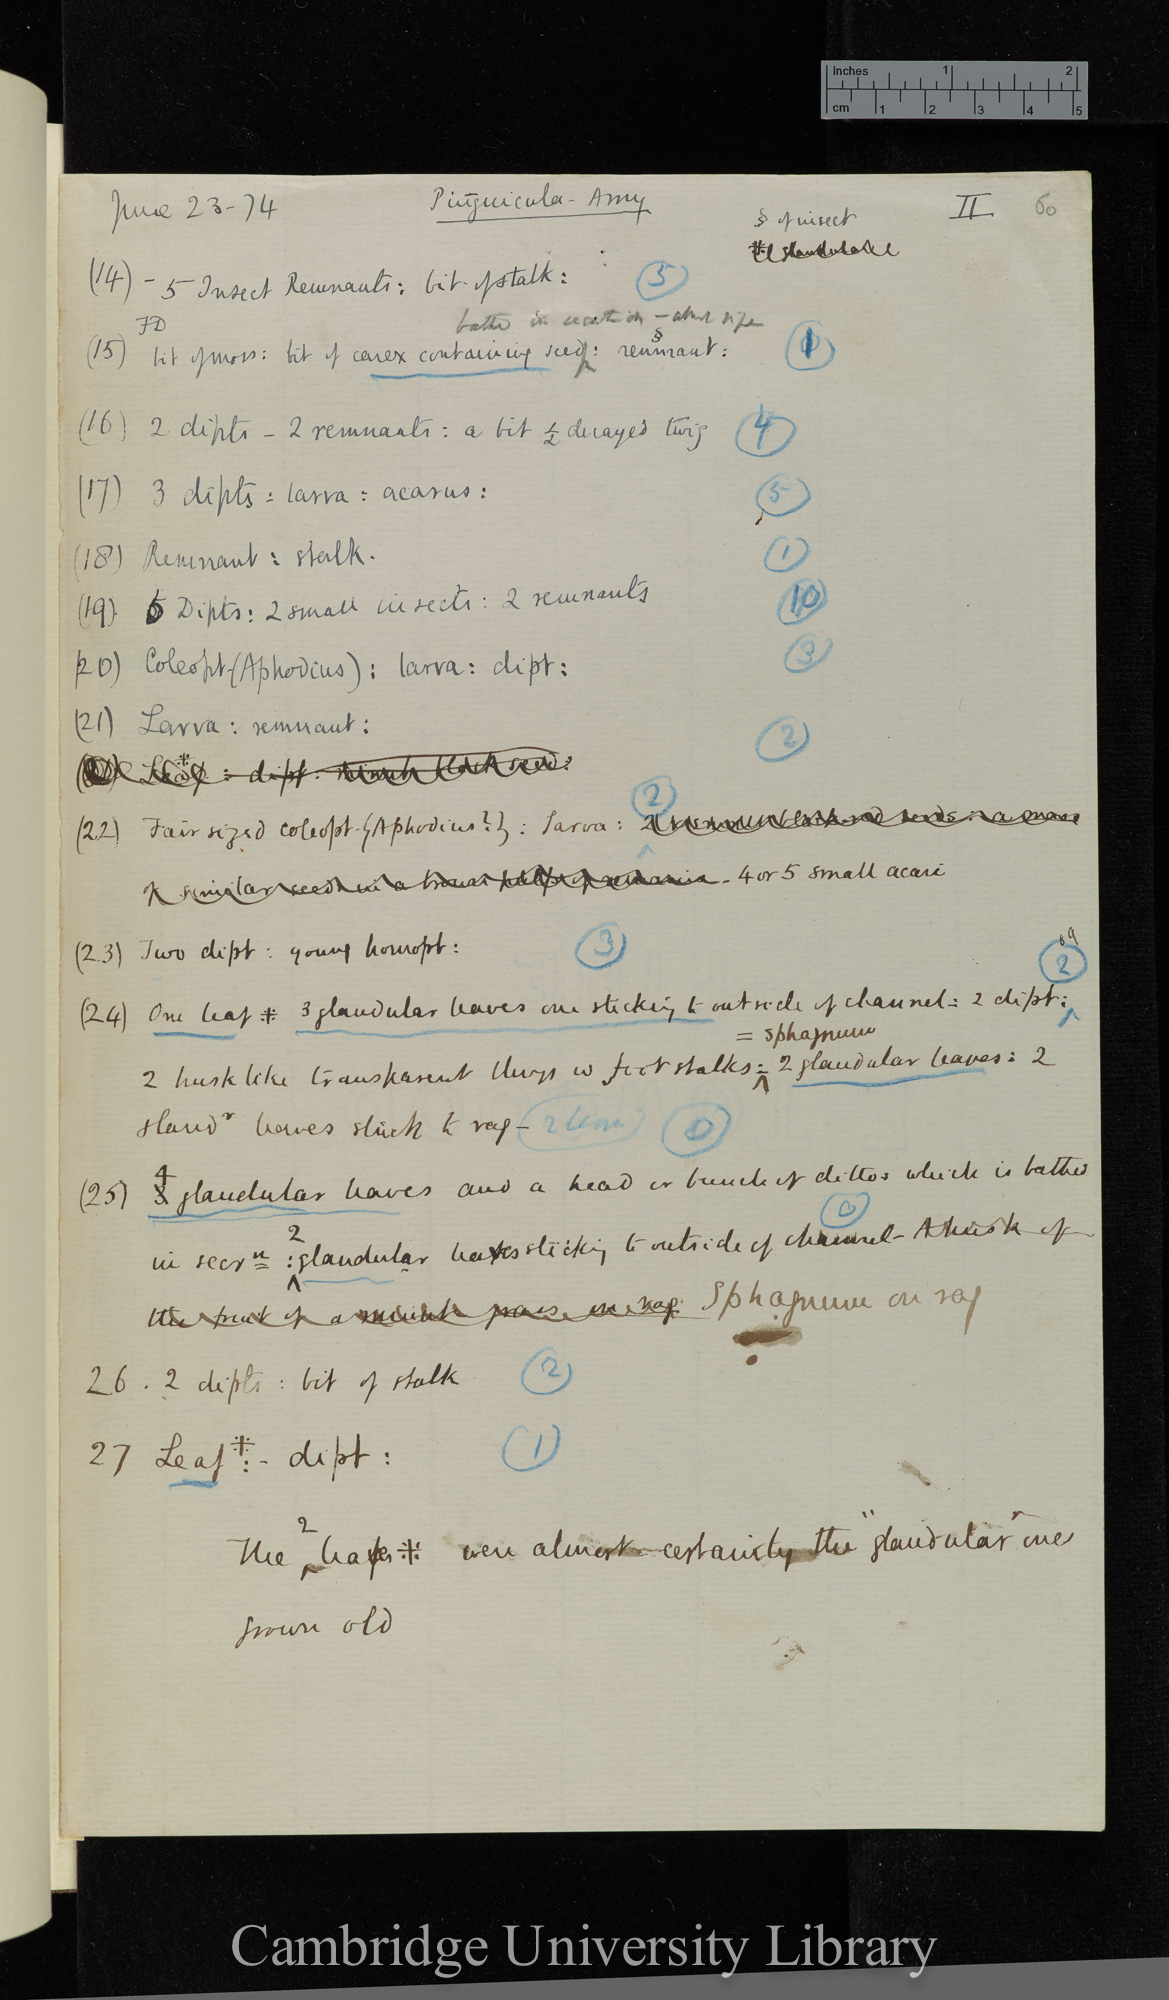 Inches 1 2
cm 1 2 3 4 5
June 23-74 Pinguicula - Amy II 60
§ of insect
(14) - 5 Insect Remnants: bit of stalk: 5
bathed in secretion -
FD §
(15) bit of moss: bit of carex containing seed: remnant: 1
(16) 2 dipts - 2 remnants: a bit ½ decayed twig 4
(17) 3 dipts: larva: acarus: 5
(18) Remnant: stalk. 1
(19) 6 Dipts: 2 small insects: 2 remnants 10
(20) Coleopt-(Aphodius): larva: dipt: 3
(21) Larva: remnant: 2
Leaf : dipt: minute black seed:
2
(22) Fair sized coleopt-{Aphodius?}: larva: 2 seeds: a mass
of similar seeds in a brown - 4 or 5 small acari
(23) Two dipt: young homopt: 3
2
(24) One leaf ⁜ 3 glandular leaves one sticking to outside of channel: 2 dipt:
= Sphagnum
2 husk like transparent things w foot stalks: 2 glandular leaves: 2
glandr leaves stuck to rag - 0
4
(25) 3 glandular leaves and a head or bunch of dittos which is bathed
2 0
in secrn : glandular leaves sticking to outside of channel - A husk of
the fruit of a minute grass on rag. Sphagnum on rag
26. 2 dipts: bit of stalk 2
27 Leaf ⁜: - dipt: 1
2
The leaves ⁜ were almost certainly the "glandular" one
grown old
Cambridge University Library